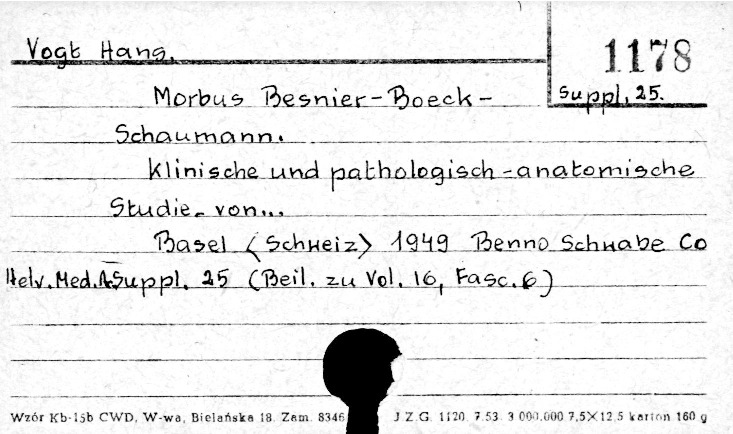 Vogt Hans.
1178
Suppl. 25.
Morbus Besnier-Boeck-
Schaumann.
Klinische und pathologisch-anatomische
Studie von...
Basel (Schweiz) 1949 Benno Schwabe Co
Helv. Med. A. Suppl. 25 (Beil. zu Vol. 16, Fasc. 6)
Wzór Kb-15b CWD, W-wa, Bielańska 18. Zam. 8346 J.Z.G. 1120. 7.53. 3.000.000 7,5×12,5 karton 160 g